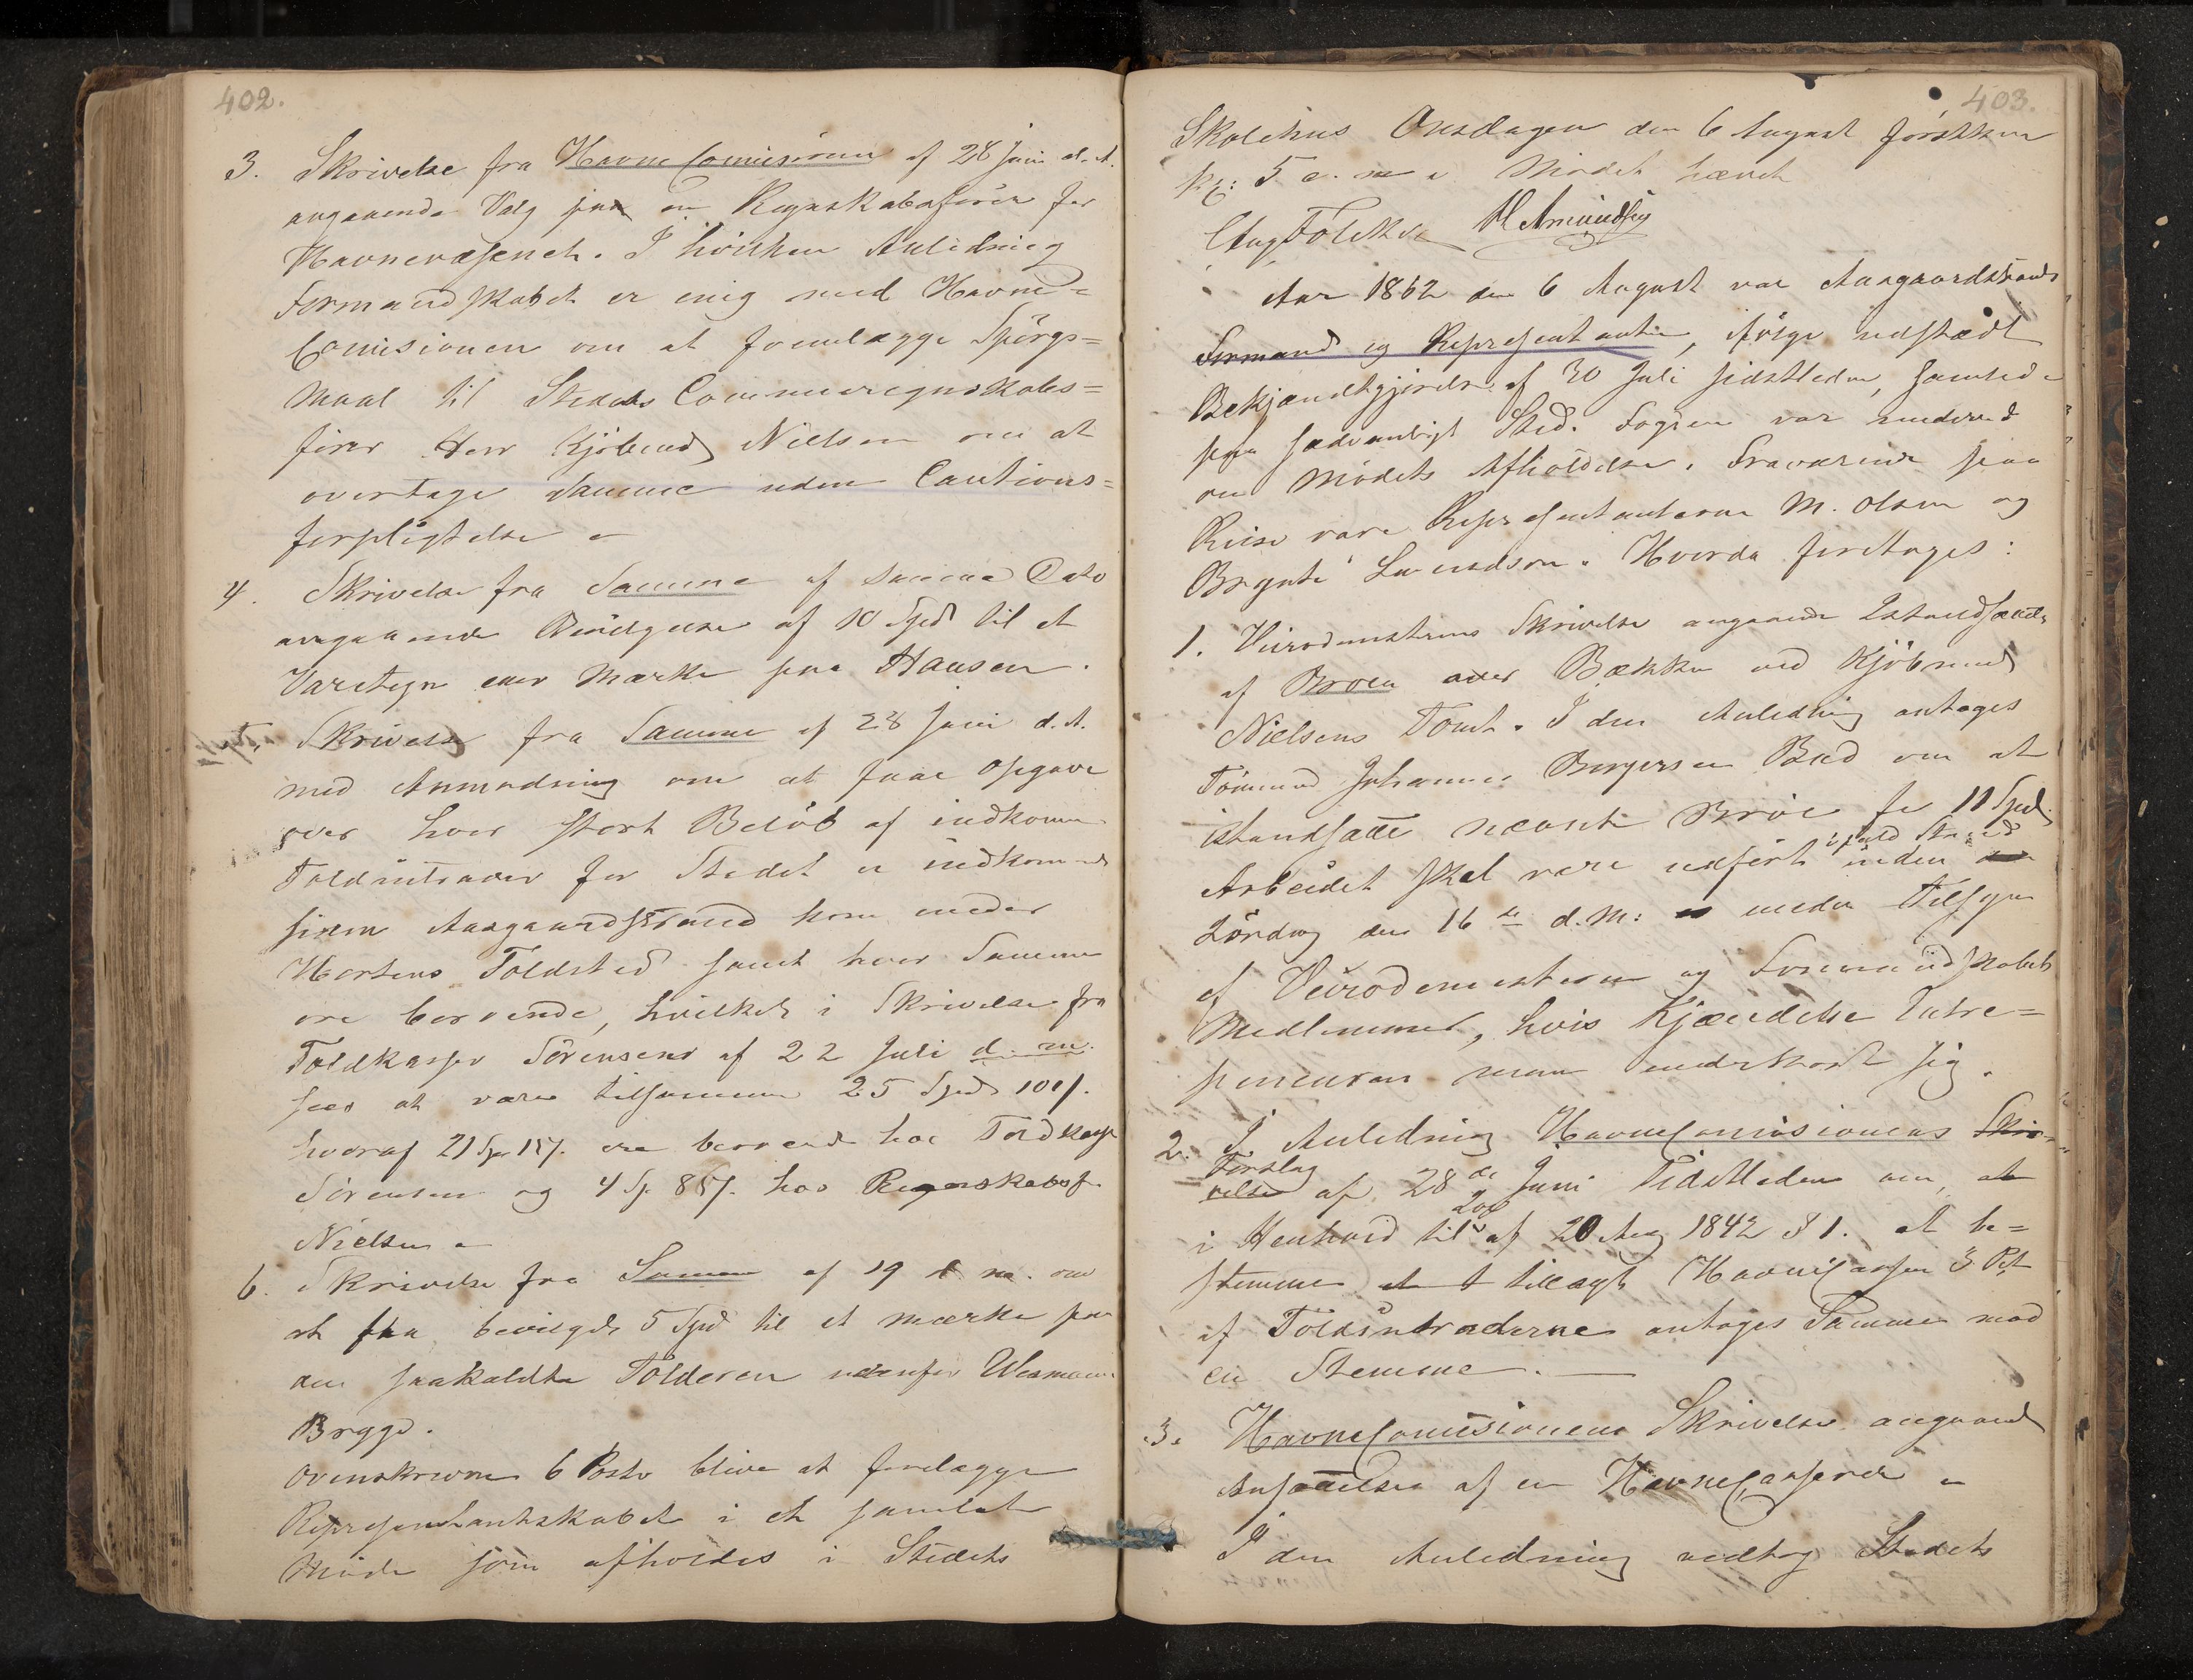 402.
3. Skrivelse fra Havne Comisionen af 28 Juni d. A.
angaaende Valg paa en Regnskabsfører for
Havnevæsenet. I hvilken Anledning
Formandskabet er enig med Havne=
Comisionen om at fremlægge Spörgs=
maal til Stedets Communeregnskabs=
förer Herr Kjöbmd Nielsen om at
overtage Samme uden Cautions=
forpligtelse
4. Skrivelse fra Samme af samme Dato
angaaende Bevilgelse af 10 Spd til et
Varetegn eller Mærke paa Hausen.
Skrivelse fra Samme af 28 Juni d. A.
med Anmodning om at faae Opgave
over hvor stort Belöb af indkomne
Toldintrader for Stedet er indkommet
siden Aasgaardstrand kom under
Hortens Toldsted samt hvor Samme
ere beroende, hvilket i Skrivelse fra
Toldkasser Sörensens af 22 Juli d. m.
sees at være tilsammen 25 Spd 101/.
hvoraf 21 Sp 15/. ere beroende hos Toldkass
Sörensen og 4 Sp. 86/. hos Regnskabsf.
Nielsen
6. Skrivelse fra Samme af 19 d. m. om
at faa bevilgde 5 Spd til et Mærke paa
den saakaldte Tolderen udenfor
Brygge.
Ovenskrevne 6 Poste blive at forelægge
Repræsentantskabet i et samlet
Möde som afholdes i Stedets
403.
Skolehus Onsdagen den 6 August förstkom
Kl: 5 e. m. Mödet hævet
Aug Foldker H Amundsen
Aar 1862 den 6 August var Aasgaardstrands
Formænd og Repræsentanter, ifölge udstædt
Bekjændtgjörelse af 30 Juli sidstleden, samlede
paa sædvanligt Sted. Fogden var underret
om Mödets Afholdelse. Fraværende paa
Reise vare Repræsentanterne M. Olsen og
Brynte Lauersen. Hvorda foretoges:
1. Veirodemesterens Skrivelse angaaende Istandsætelse
af Broen over Bækken ved Kjöbmd
Nielsens Tomt. I den Anledning antoges
Tömmermd Johannes Borgersen Bud om at
istandsætte nævnte Broe for 11 Spd.
Arbeidet skal være udfört i fuld Stand inden
Lördag den 16de d. M: under Tilsyn
af Veirodemesteren og Formandskabets
Medlemmer, hvis Kjændelse Entre=
preneuren maa underkaste sig.
2. I Anledning HavneComisionens Skri=
velse Forslag af 28de Juni sidstleden om, at
i Henhold til Lov af 20 Aug 1842 § 1. at be=
stemme at tillægt HavneCassen 3 Pct
af Toldintraderne antoges Samme mod
en Stemme.
3. HavneComisionens Skrivelse angaaende
Ansættelse af en HavneCasserer
I den Anledning vedtog Stedets